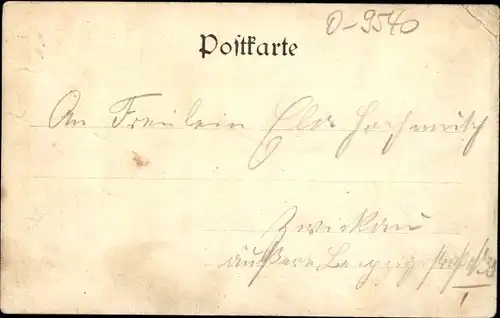 O-9540
Postkarte
An Fräulein Elsa
Zwickau
äußere Leipzigerstraße